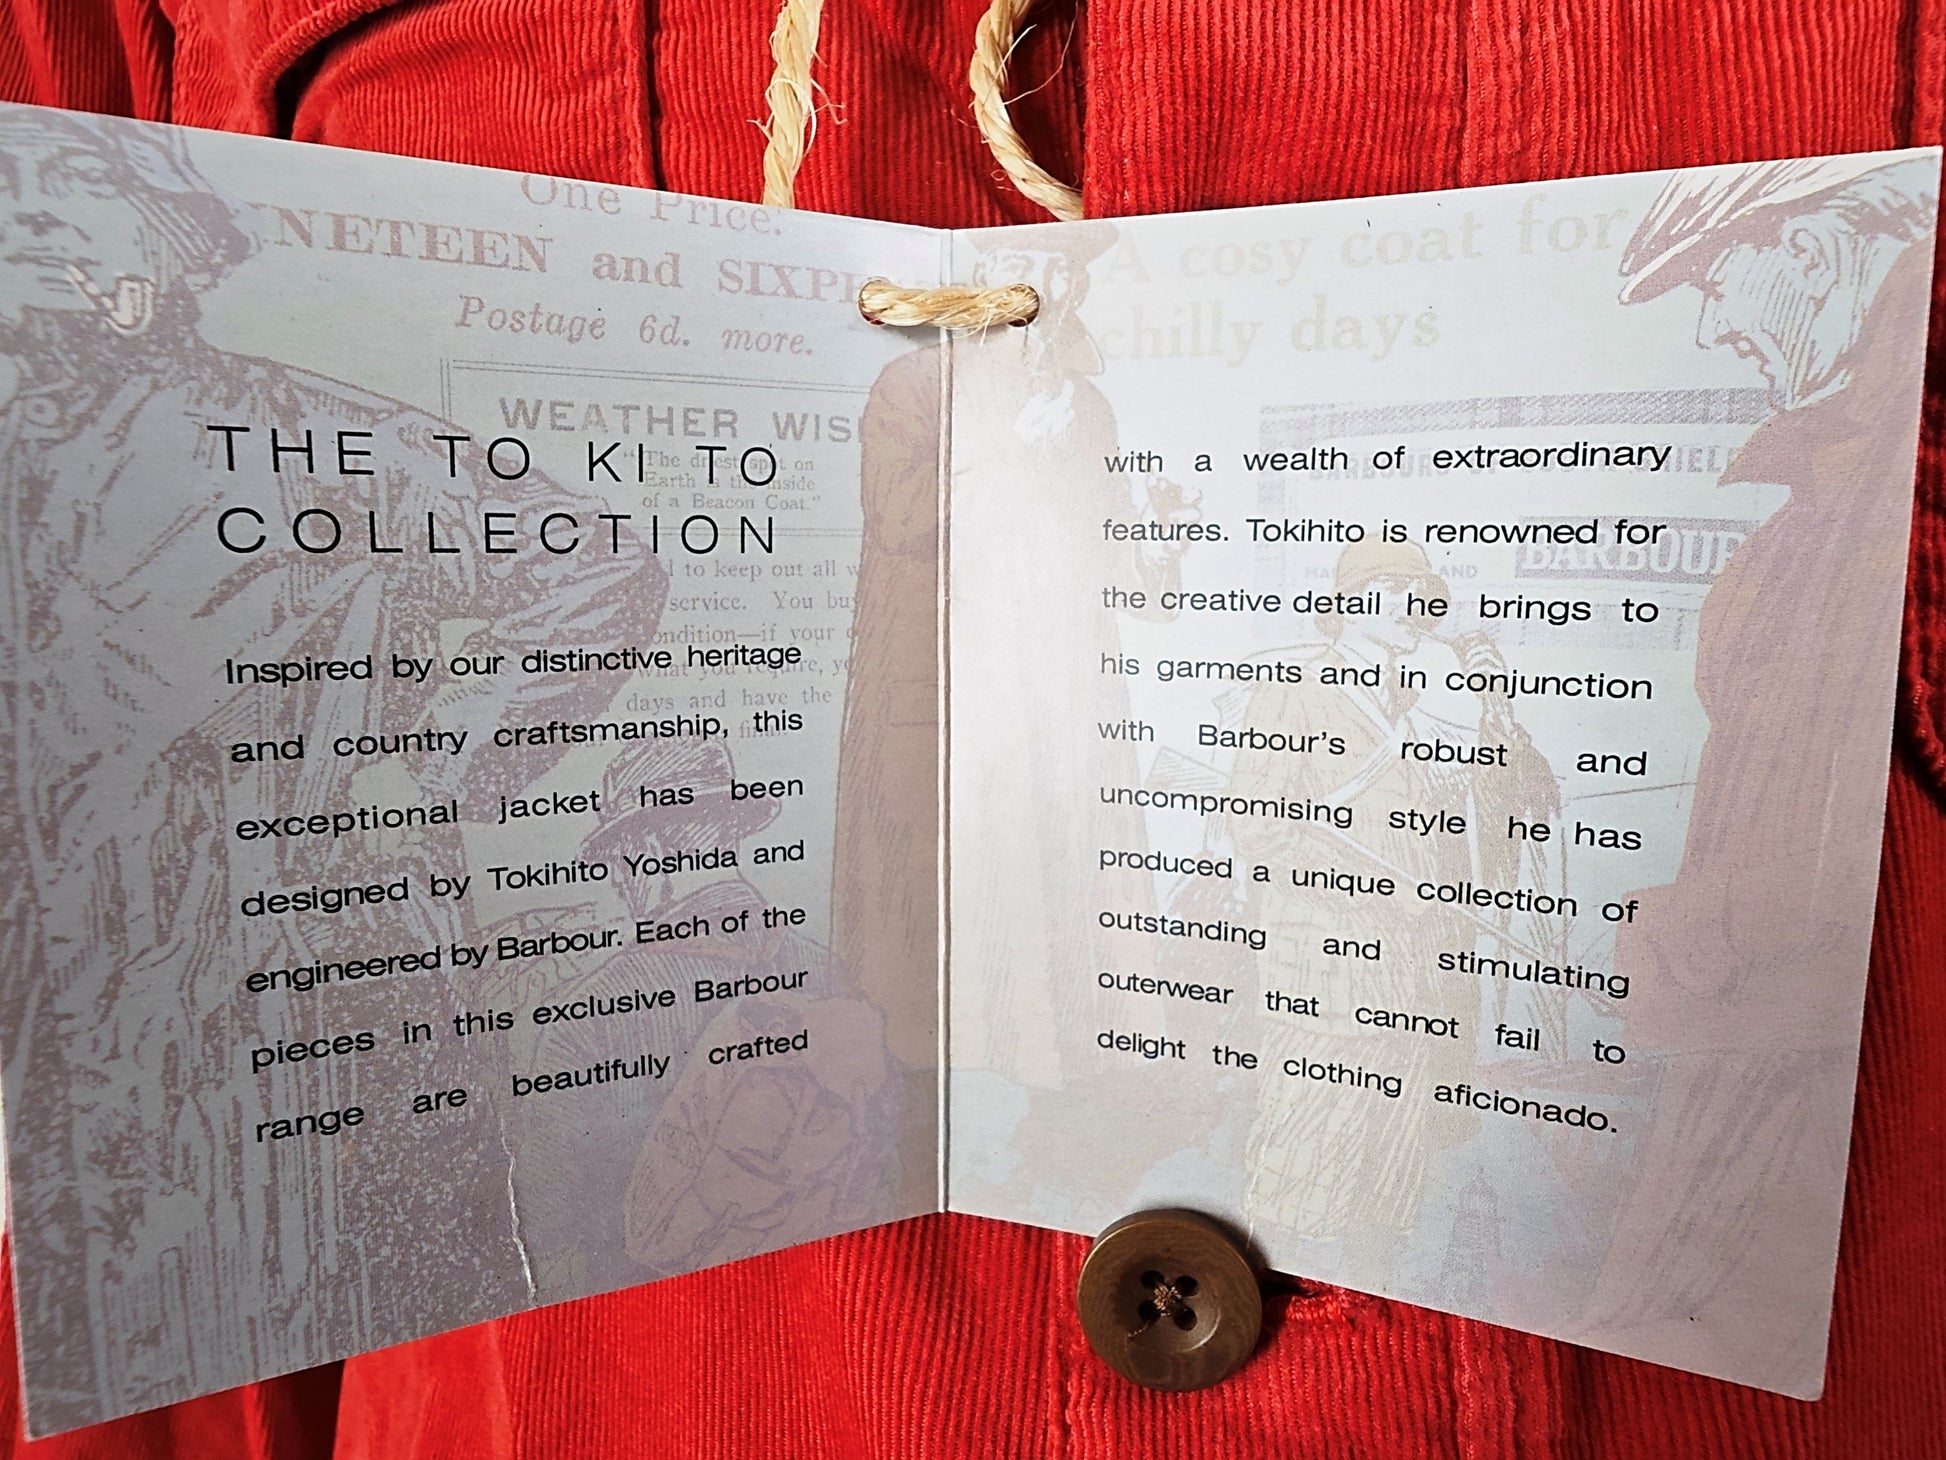 One Price:
NETEEN and SIXPE
Postage 6d. more.
WEATHER WIS
"The driest spot on
Earth is the inside
of a Beacon Coat."
THE TO KI TO
COLLECTION
to keep out all w
service. You buy
ondition—if your
what you require, y
days and have the
Inspired by our distinctive heritage
and country craftsmanship, this
exceptional jacket has been
designed by Tokihito Yoshida and
engineered by Barbour. Each of the
pieces in this exclusive Barbour
range are beautifully crafted
A cosy coat for
chilly days
BARBOUR
AND
with a wealth of extraordinary
features. Tokihito is renowned for
the creative detail he brings to
his garments and in conjunction
with Barbour's robust and
uncompromising style he has
produced a unique collection of
outstanding and stimulating
outerwear that cannot fail to
delight the clothing aficionado.